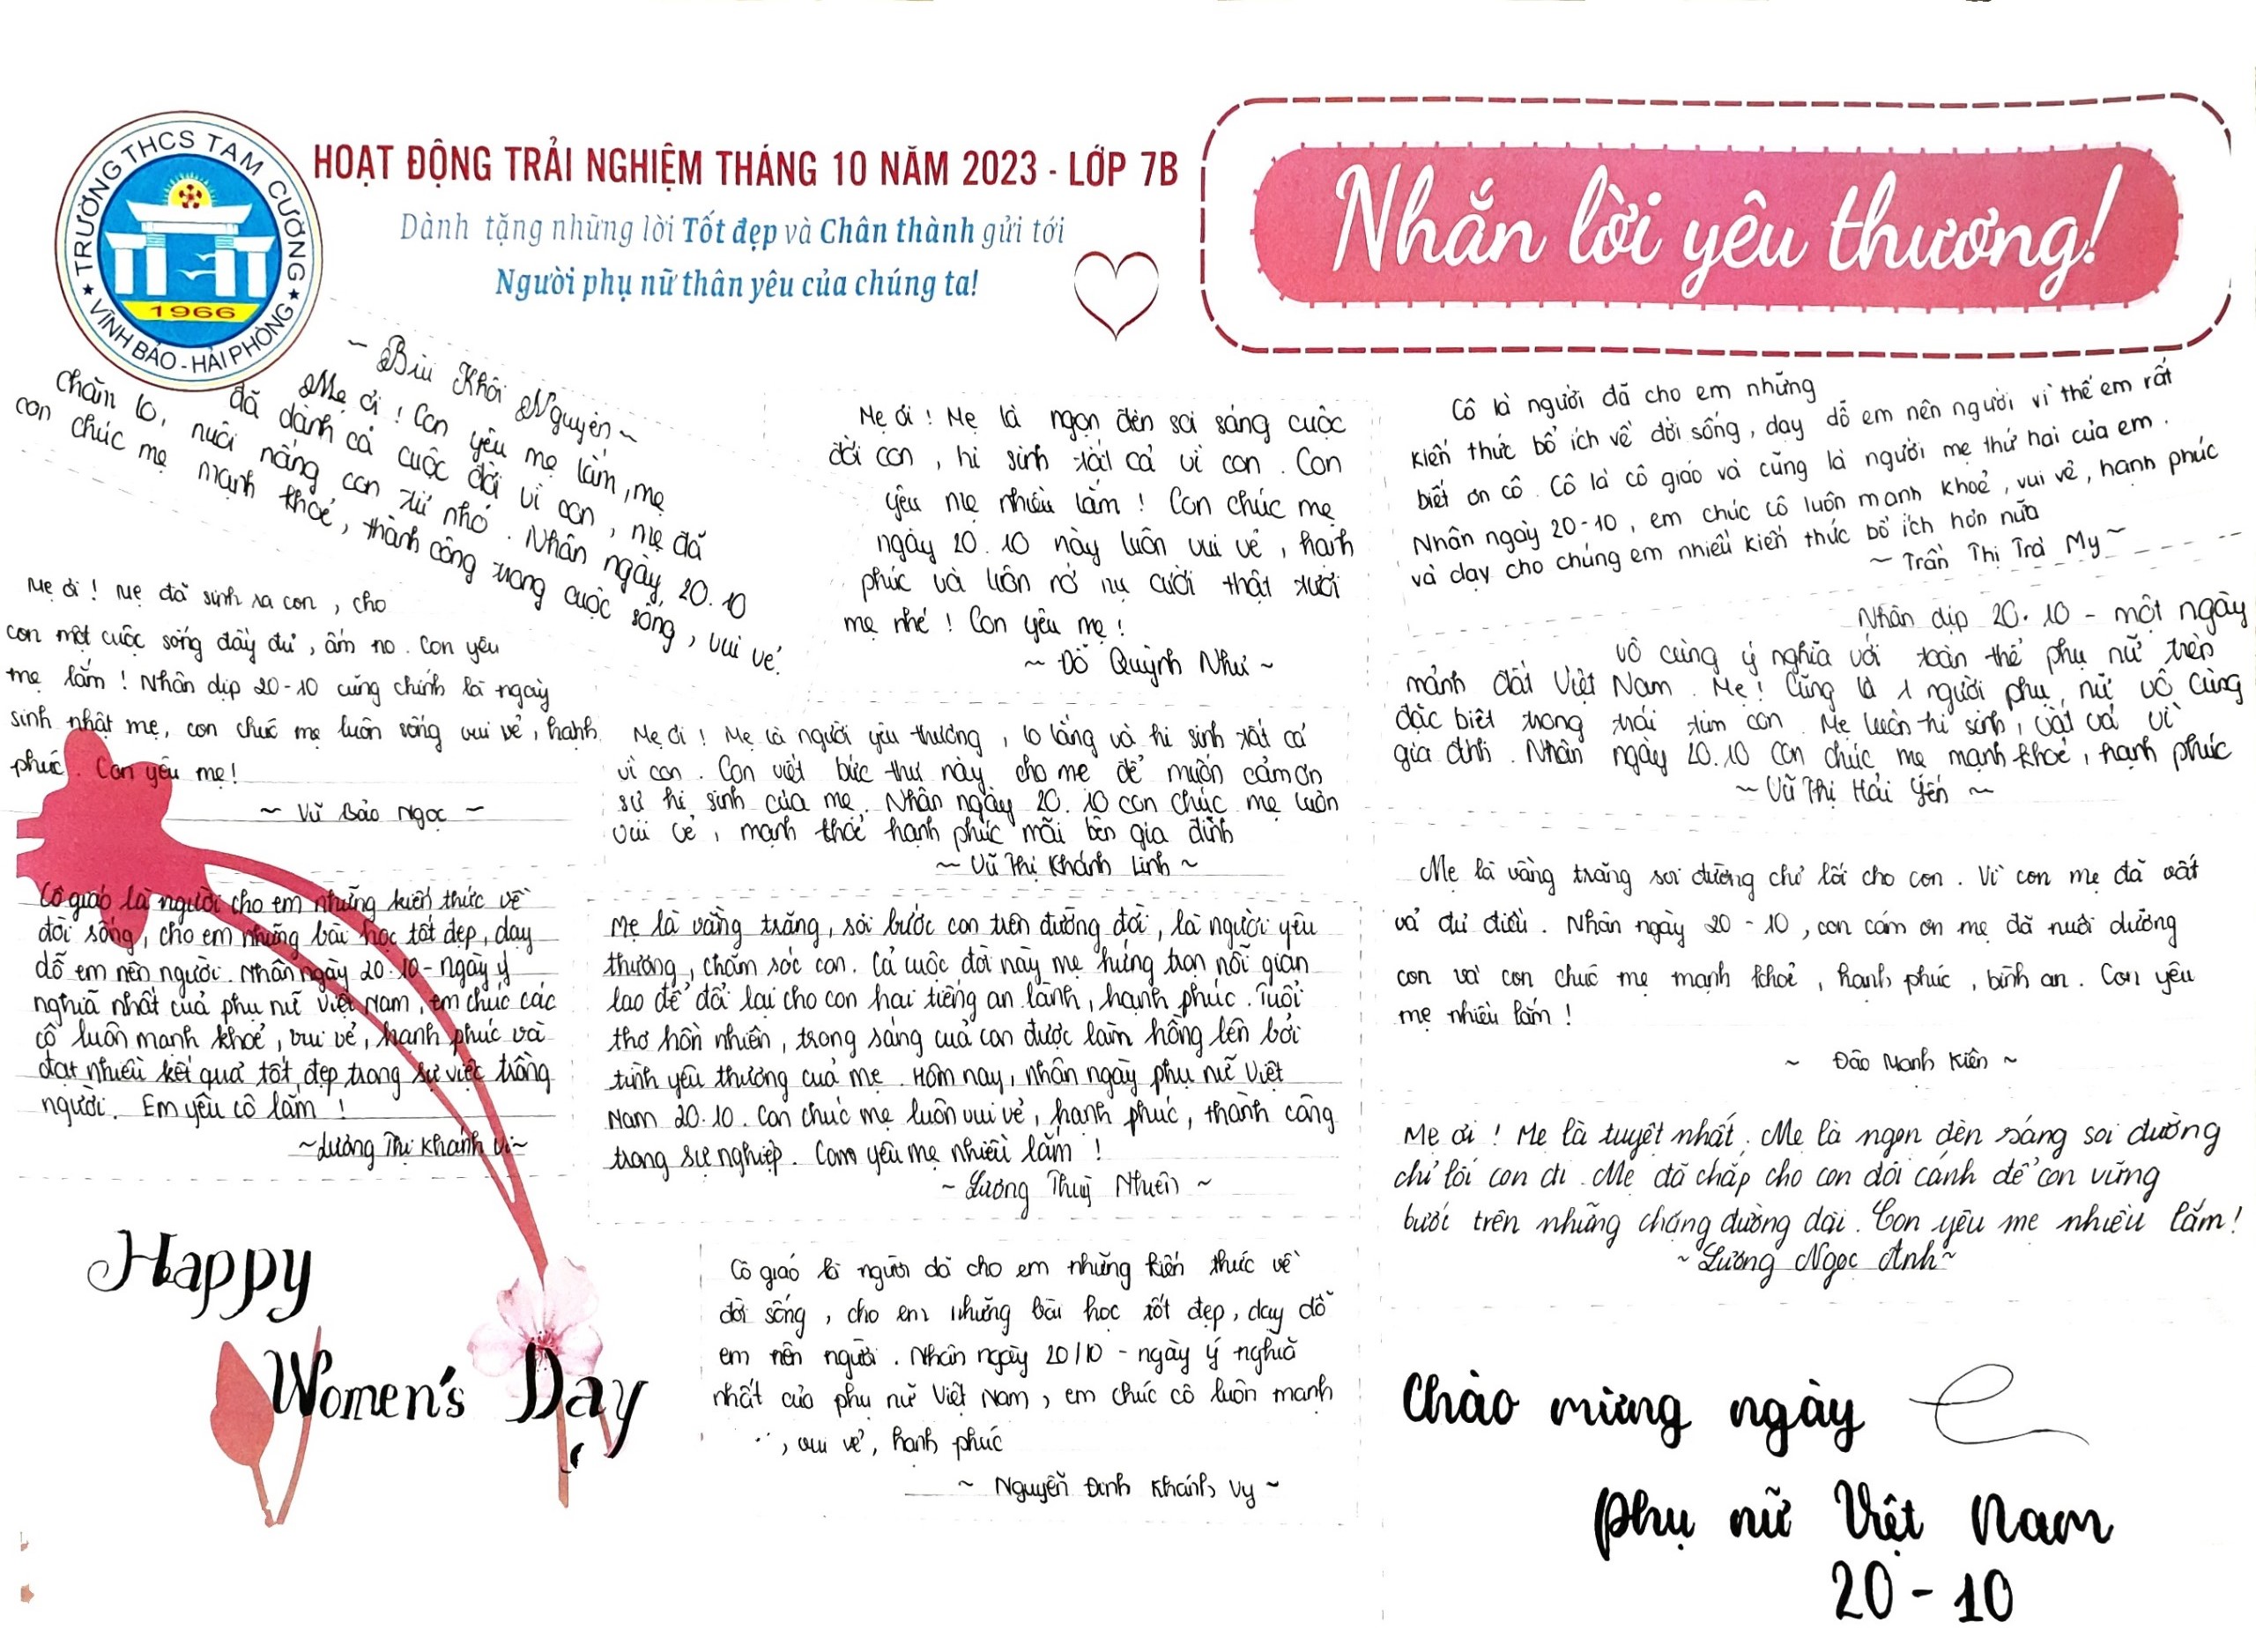 TRƯỜNG THCS TAM CƯỜNG
1966
VĨNH BẢO - HẢI PHÒNG
HOẠT ĐỘNG TRẢI NGHIỆM THÁNG 10 NĂM 2023 - LỚP 7B
Dành tặng những lời Tốt đẹp và Chân thành gửi tới
Người phụ nữ thân yêu của chúng ta!
Nhắn lời yêu thương!
~ Bùi Khôi Nguyên ~
Mẹ ơi ! Con yêu mẹ lắm, mẹ
đã dành cả cuộc đời vì con, mẹ đã
chăm lo, nuôi nấng con từ nhỏ. Nhân ngày 20.10
con chúc mẹ mạnh khoẻ, thành công trong cuộc sống, vui vẻ.
Mẹ ơi ! Mẹ đã sinh ra con, cho
con một cuộc sống đầy đủ, ấm no. Con yêu
mẹ lắm ! Nhân dịp 20-10 cũng chính là ngày
sinh nhật mẹ, con chúc mẹ luôn sống vui vẻ, hạnh
phúc. Con yêu mẹ!
~ Vũ Bảo Ngọc ~
Cô giáo là người cho em những kiến thức về
đời sống, cho em những bài học tốt đẹp, dạy
dỗ em nên người. Nhân ngày 20.10 - ngày ý
nghĩa nhất của phụ nữ Việt Nam, em chúc các
cô luôn mạnh khoẻ, vui vẻ, hạnh phúc và
đạt nhiều kết quả tốt đẹp trong sự việc trồng
người. Em yêu cô lắm !
~Lương Thị Khánh Vi~
Happy
Women's Day
Mẹ ơi ! Mẹ là ngọn đèn soi sáng cuộc
đời con, hi sinh tất cả vì con. Con
yêu mẹ nhiều lắm ! Con chúc mẹ
ngày 20.10 này luôn vui vẻ, hạnh
phúc và luôn nở nụ cười thật tươi
mẹ nhé ! Con yêu mẹ !
~ Đỗ Quỳnh Như ~
Mẹ ơi ! Mẹ là người yêu thương, lo lắng và hi sinh tất cả
vì con. Con viết bức thư này cho mẹ để muốn cảm ơn
sự hi sinh của mẹ. Nhân ngày 20.10 con chúc mẹ luôn
vui vẻ, mạnh khoẻ hạnh phúc mãi bên gia đình
~ Vũ Thị Khánh Linh ~
Mẹ là vầng trăng, sói bước con trên đường đời, là người yêu
thương, chăm sóc con. Cả cuộc đời này mẹ hứng trọn nỗi gian
lao để đổi lại cho con hai tiếng an lành, hạnh phúc. Tuổi
thơ hồn nhiên, trong sáng của con được làm hồng lên bởi
tình yêu thương của mẹ. Hôm nay, nhân ngày phụ nữ Việt
Nam 20.10. Con chúc mẹ luôn vui vẻ, hạnh phúc, thành công
trong sự nghiệp. Con yêu mẹ nhiều lắm !
~ Lương Thuỳ Nhiên ~
Cô giáo là người đã cho em những kiến thức về
đời sống, cho em những bài học tốt đẹp, dạy dỗ
em nên người. Nhân ngày 20/10 - ngày ý nghĩa
nhất của phụ nữ Việt Nam, em chúc cô luôn mạnh
, vui vẻ, hạnh phúc
~ Nguyễn Đinh Khánh Vy ~
Cô là người đã cho em những
kiến thức bổ ích về đời sống, dạy dỗ em nên người vì thế em rất
biết ơn cô. Cô là cô giáo và cũng là người mẹ thứ hai của em.
Nhân ngày 20-10, em chúc cô luôn mạnh khoẻ, vui vẻ, hạnh phúc
và dạy cho chúng em nhiều kiến thức bổ ích hơn nữa
~ Trần Thị Trà My ~
Nhân dịp 20.10 - một ngày
vô cùng ý nghĩa với toàn thể phụ nữ trên
mảnh đất Việt Nam. Mẹ! Cũng là 1 người phụ nữ vô cùng
đặc biệt trong trái tim con. Mẹ luôn hi sinh, vất vả vì
gia đình. Nhân ngày 20.10 con chúc mẹ mạnh khoẻ, hạnh phúc
~ Vũ Thị Hải Yến ~
Mẹ là vầng trăng soi đường chỉ lối cho con. Vì con mẹ đã vất
vả đủ điều. Nhân ngày 20-10, con cảm ơn mẹ đã nuôi dưỡng
con và con chúc mẹ mạnh khoẻ, hạnh phúc, bình an. Con yêu
mẹ nhiều lắm !
~ Đào Mạnh Kiên ~
Mẹ ơi ! Mẹ là tuyệt nhất. Mẹ là ngọn đèn sáng soi đường
chỉ lối con đi. Mẹ đã chắp cho con đôi cánh để con vững
bước trên những chặng đường dài. Con yêu mẹ nhiều lắm!
~Lương Ngọc Anh~
Chào mừng ngày
phụ nữ Việt Nam
20-10